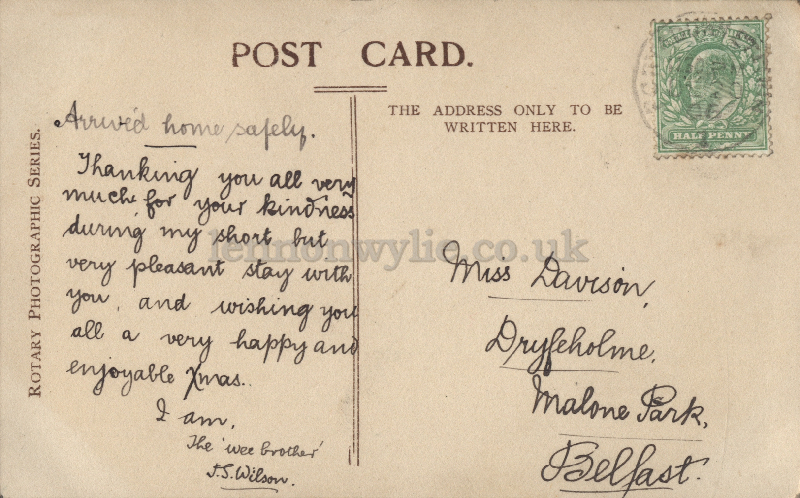 POST CARD.
ROTARY PHOTOGRAPHIC SERIES.
THE ADDRESS ONLY TO BE
WRITTEN HERE.
HALF PENNY
Arrived home safely.
Thanking you all very
much for your kindness
during my short but
very pleasant stay with
you, and wishing you
all a very happy and
enjoyable Xmas.
I am,
The 'wee brother'
J.S. Wilson.
Miss Davison,
Dryfeholme,
Malone Park,
Belfast.
lennonwylie.co.uk